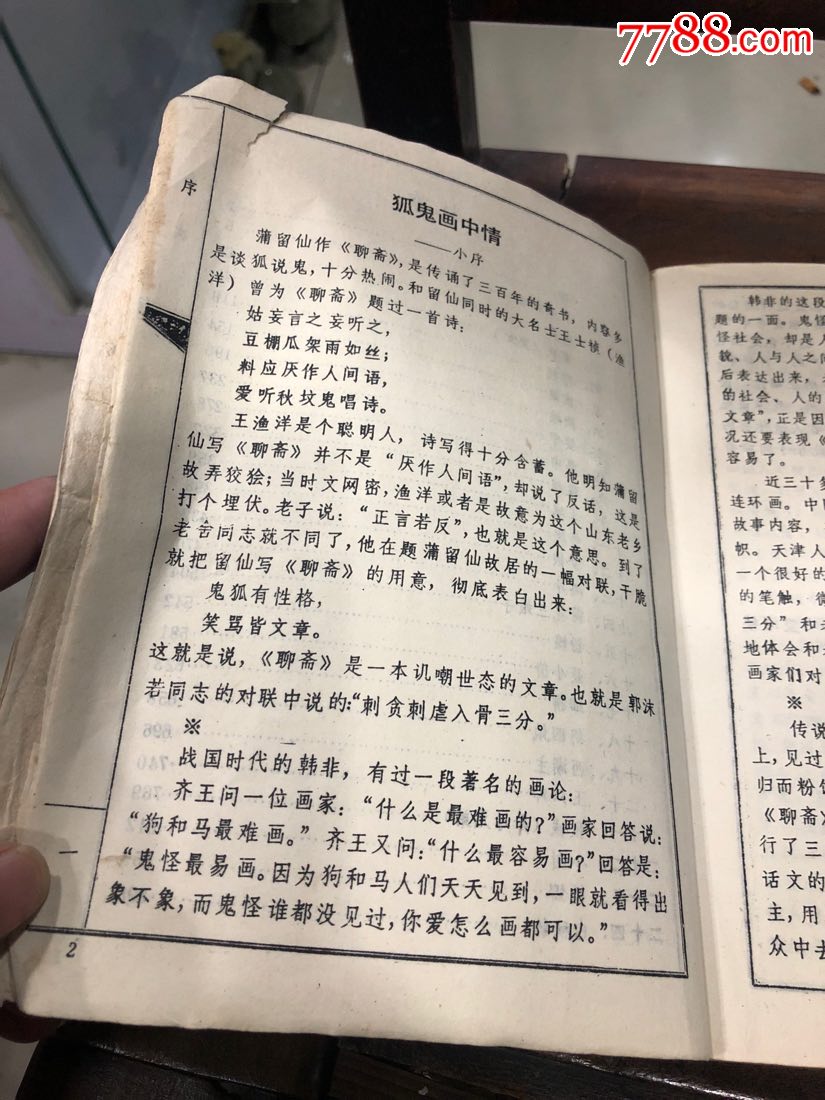 7788.com
序
狐鬼画中情
——小序
蒲留仙作《聊斋》，是传诵了三百年的奇书，内容多
是谈狐说鬼，十分热闹。和留仙同时的大名士王士桢（渔
洋）曾为《聊斋》题过一首诗：
姑妄言之妄听之，
豆棚瓜架雨如丝；
料应厌作人间语，
爱听秋坟鬼唱诗。
王渔洋是个聪明人，诗写得十分含蓄。他明知蒲留
仙写《聊斋》并不是“厌作人间语”，却说了反话，这是
故弄狡狯；当时文网密，渔洋或者是故意为这个山东老乡
打个埋伏。老子说：“正言若反”，也就是这个意思。到了
老舍同志就不同了，他在题蒲留仙故居的一幅对联，干脆
就把留仙写《聊斋》的用意，彻底表白出来：
鬼狐有性格，
笑骂皆文章。
这就是说，《聊斋》是一本讥嘲世态的文章。也就是郭沫
若同志的对联中说的：“刺贪刺虐入骨三分。”
※
战国时代的韩非，有过一段著名的画论：
齐王问一位画家：“什么是最难画的？”画家回答说：
“狗和马最难画。”齐王又问：“什么最容易画？”回答是：
“鬼怪最易画。因为狗和马人们天天见到，一眼就看得出
象不象，而鬼怪谁都没见过，你爱怎么画都可以。”
一
2
韩非的这段
题的一面。鬼怪
怪社会，却是人
貌、人与人之间
后表达出来，
的社会、人的
文章”，正是因
况还要表现《
容易了。
近三十多
连环画。中
故事内容，
帜。天津人
一个很好的
的笔触，微
三分”和老
地体会和
画家们对
※
传说
上，见过
归而粉饰
《聊斋》
行了三
话文的
主，用
众中去